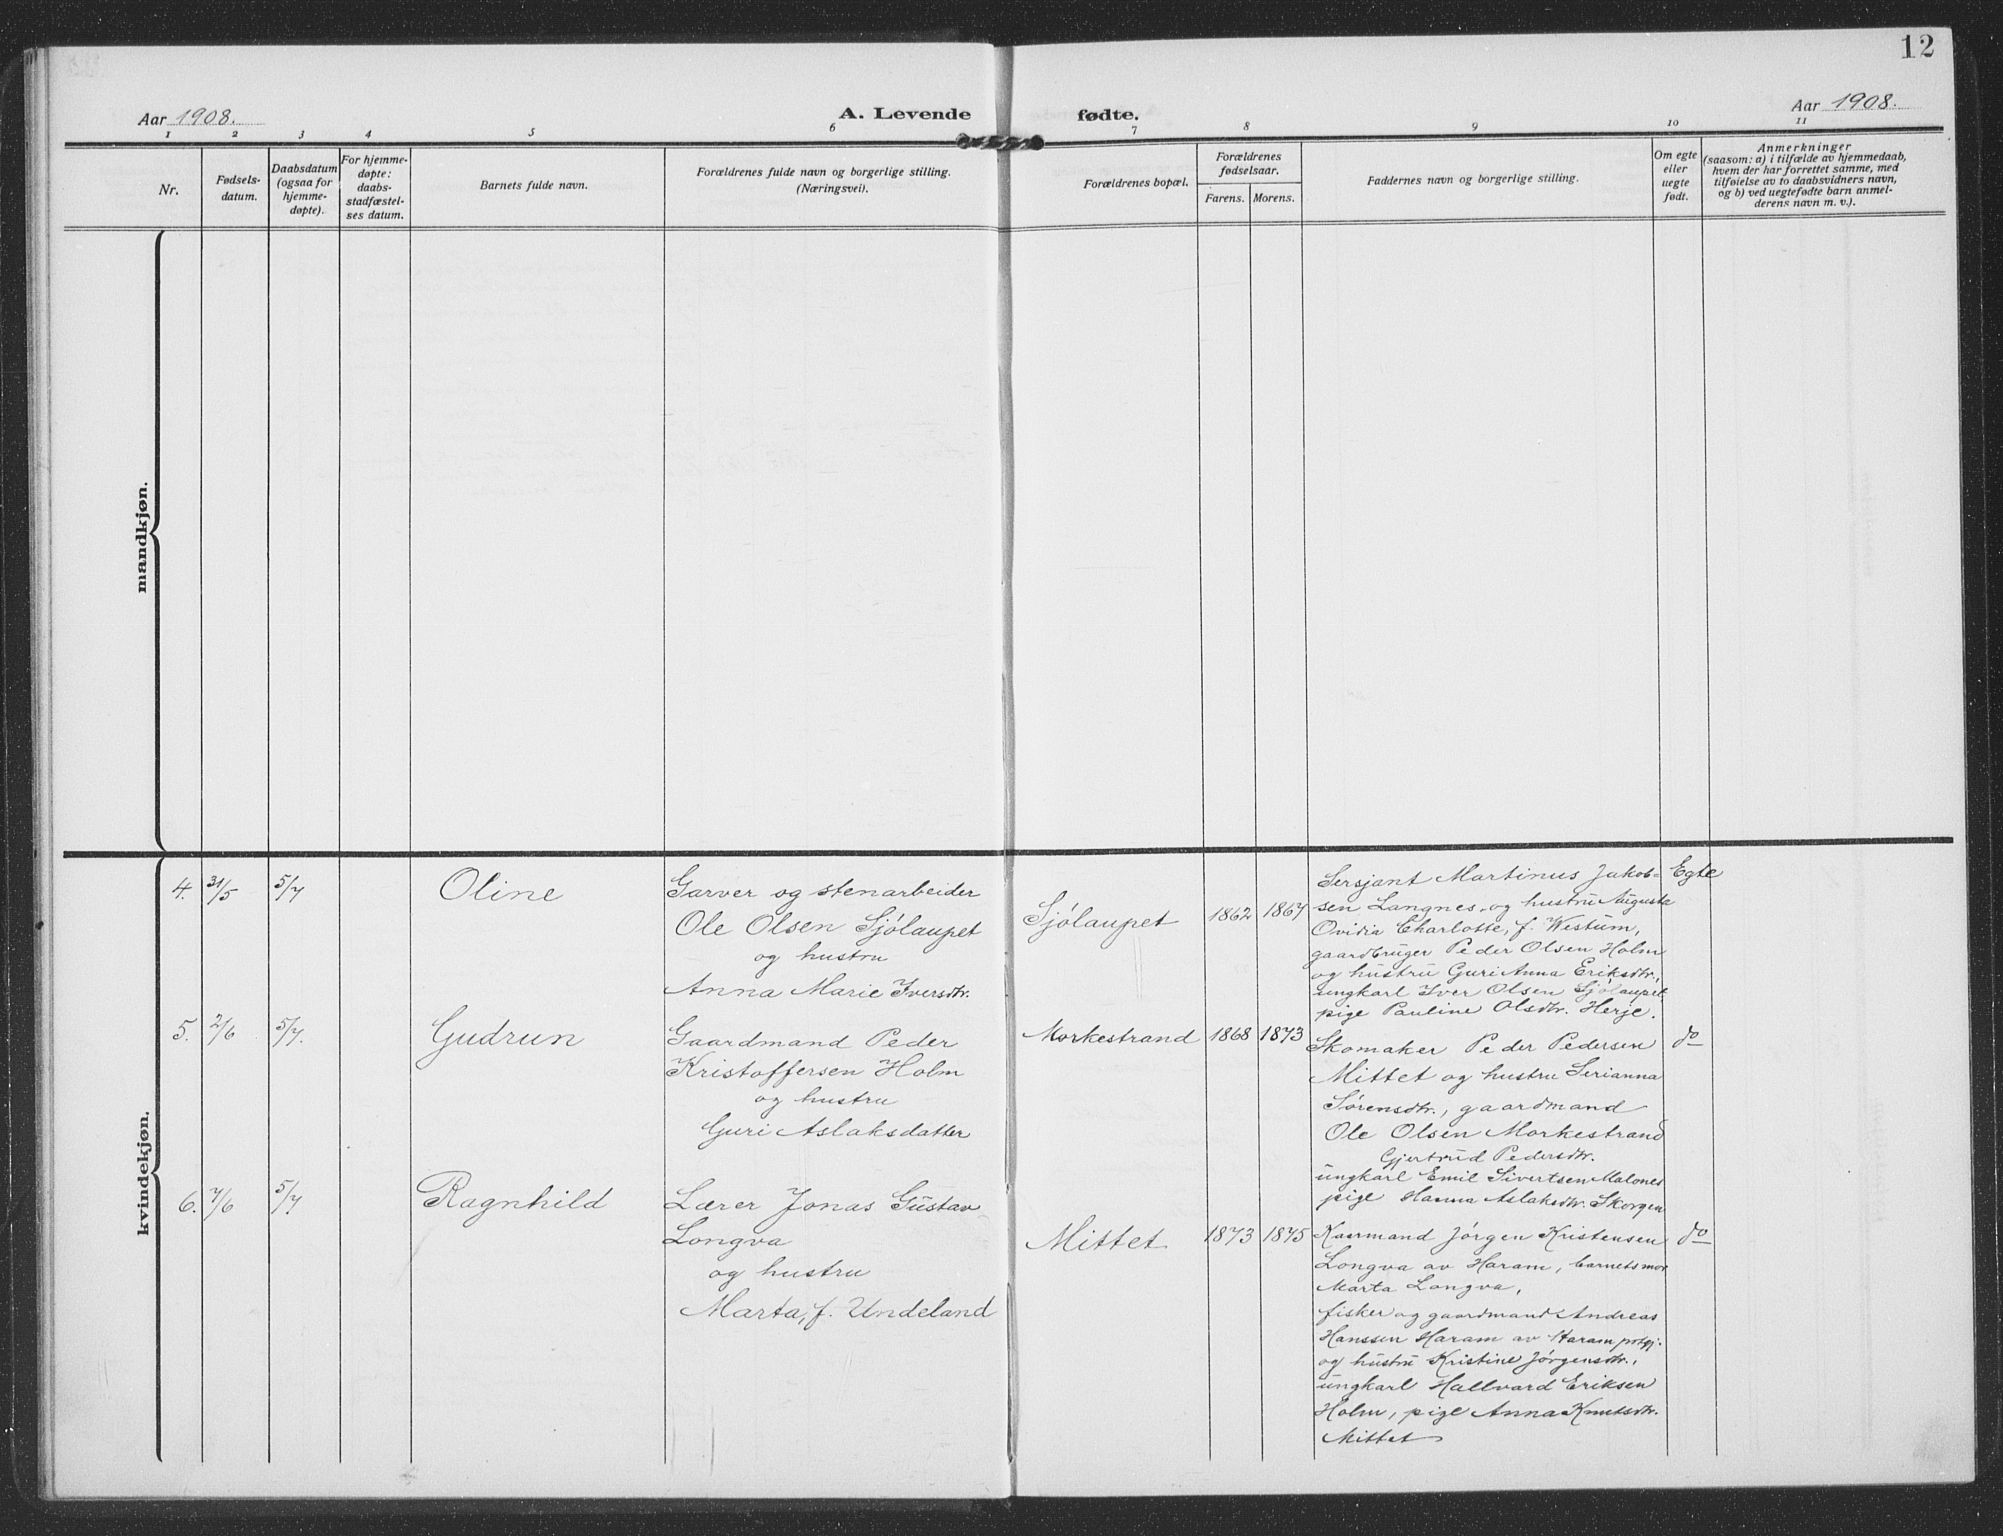 12
Aar 1908.
A. Levende fødte.
Aar 1908.
1 2 3 4 5 6 7 8 9 10 11
Nr.
Fødsels-
datum.
Daabsdatum
(ogsaa for
hjemme-
døpte).
For hjemme-
døpte:
daabs-
stadfæstel-
ses datum.
Barnets fulde navn.
Forældrenes fulde navn og borgerlige stilling.
(Næringsvei).
Forældrenes bopæl.
Forældrenes
fødselsaar.
Farens. Morens.
Faddernes navn og borgerlige stilling.
Om egte
eller
uegte
født.
Anmerkninger
(saasom: a) i tilfælde av hjemmedaab,
hvem der har forrettet samme, med
tilføielse av to daabsvidners navn,
og b) ved uegtefødte barn anmel-
derens navn m. v.).
mandkjøn.
kvindekjøn.
4. 31/5 5/7 Oline
Garver og stenarbeider
Ole Olsen Sjölaupet
og hustru
Anna Marie Iversdtr.
Sjölaupet 1862 1867
Sersjant Martinus Jakob-
sen Langnes, og hustru Augusta
Ovidia Charlotte, f. Westum,
gaardbruger Peder Olsen Holm
og hustru Guri Anna Eriksdtr.,
ungkarl Iver Olsen Sjölaupet
pige Pauline Olsdtr. Herje.
Egte
5. 2/6 5/7. Gudrun
Gaardmand Peder
Kristoffersen Holm
og hustru
Guri Aslaksdatter
Morkestrand 1868 1873
Skomaker Peder Pedersen
Mittet og hustru Serianna
Sørensdtr., gaardmand
Ole Olsen Morkestrand
Gjertrud Pedersdtr.
ungkarl Emil Sivertsen Malones
pige Hanna Aslaksdtr. Skorgen
do
6. 7/6 5/7. Ragnhild
Lærer Jonas Gustav
Longva
og hustru
Marta, f. Undeland
Mittet 1873 1875
Kaarmand Jørgen Kristensen
Longva av Haram, barnets mor
Marta Longva,
fisker og gaardmand Andreas
Hanssen Haram av Haram prstgj.
og hustru Kristine Jørgensdtr.,
ungkarl Hallvard Eriksen
Holm, pige Anna Knutsdtr.
Mittet
do